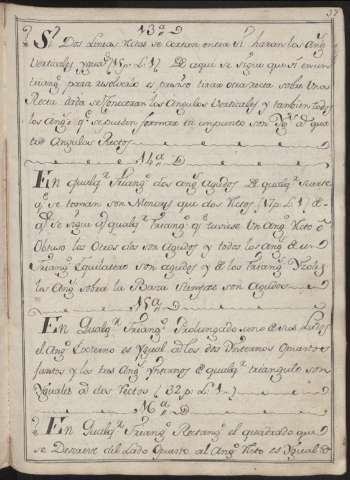 13ª
Si Dos Lineas Rectas se cortan entre sí haran los Angs
Verticales yguas (15 p. L. 1) De aqui se sigue que si en un
para tirar otra recta sobre Una
Recta dada se conoceran los Angulos Verticales y tambien todos
los Angs qe se puedan formar en un punto son Ygs a qua
tro Angulos Rectos
14ª D
En qualqr Triangs dos angs agudos De qualqr suerte
qe se toman son Menores que dos Rectos (17 p. L. 1) de
qe se sigue qe qualqr Triangs qe tuviese Un Angs Recto ô
Obtuso los Otros dos son agudos y todos los Angs de un
Triangs Equilatero son agudos y de los Triangs
los Angs sobre la Baza siempre son agudos
15ª D
En Qualqr Triangs Prolongado uno de sus Lados
el Angs Externo es Ygual a los dos Ynternos Opuestos
juntos y los tres Angs Ynternos de qualqr triangulo son
Yguales a dos Rectos (32 p. L. 1)
16ª D
En Qualqr Triangs Rectangs el quadrado que
se Descrive del Lado Opuesto al Angs Recto es Ygual a